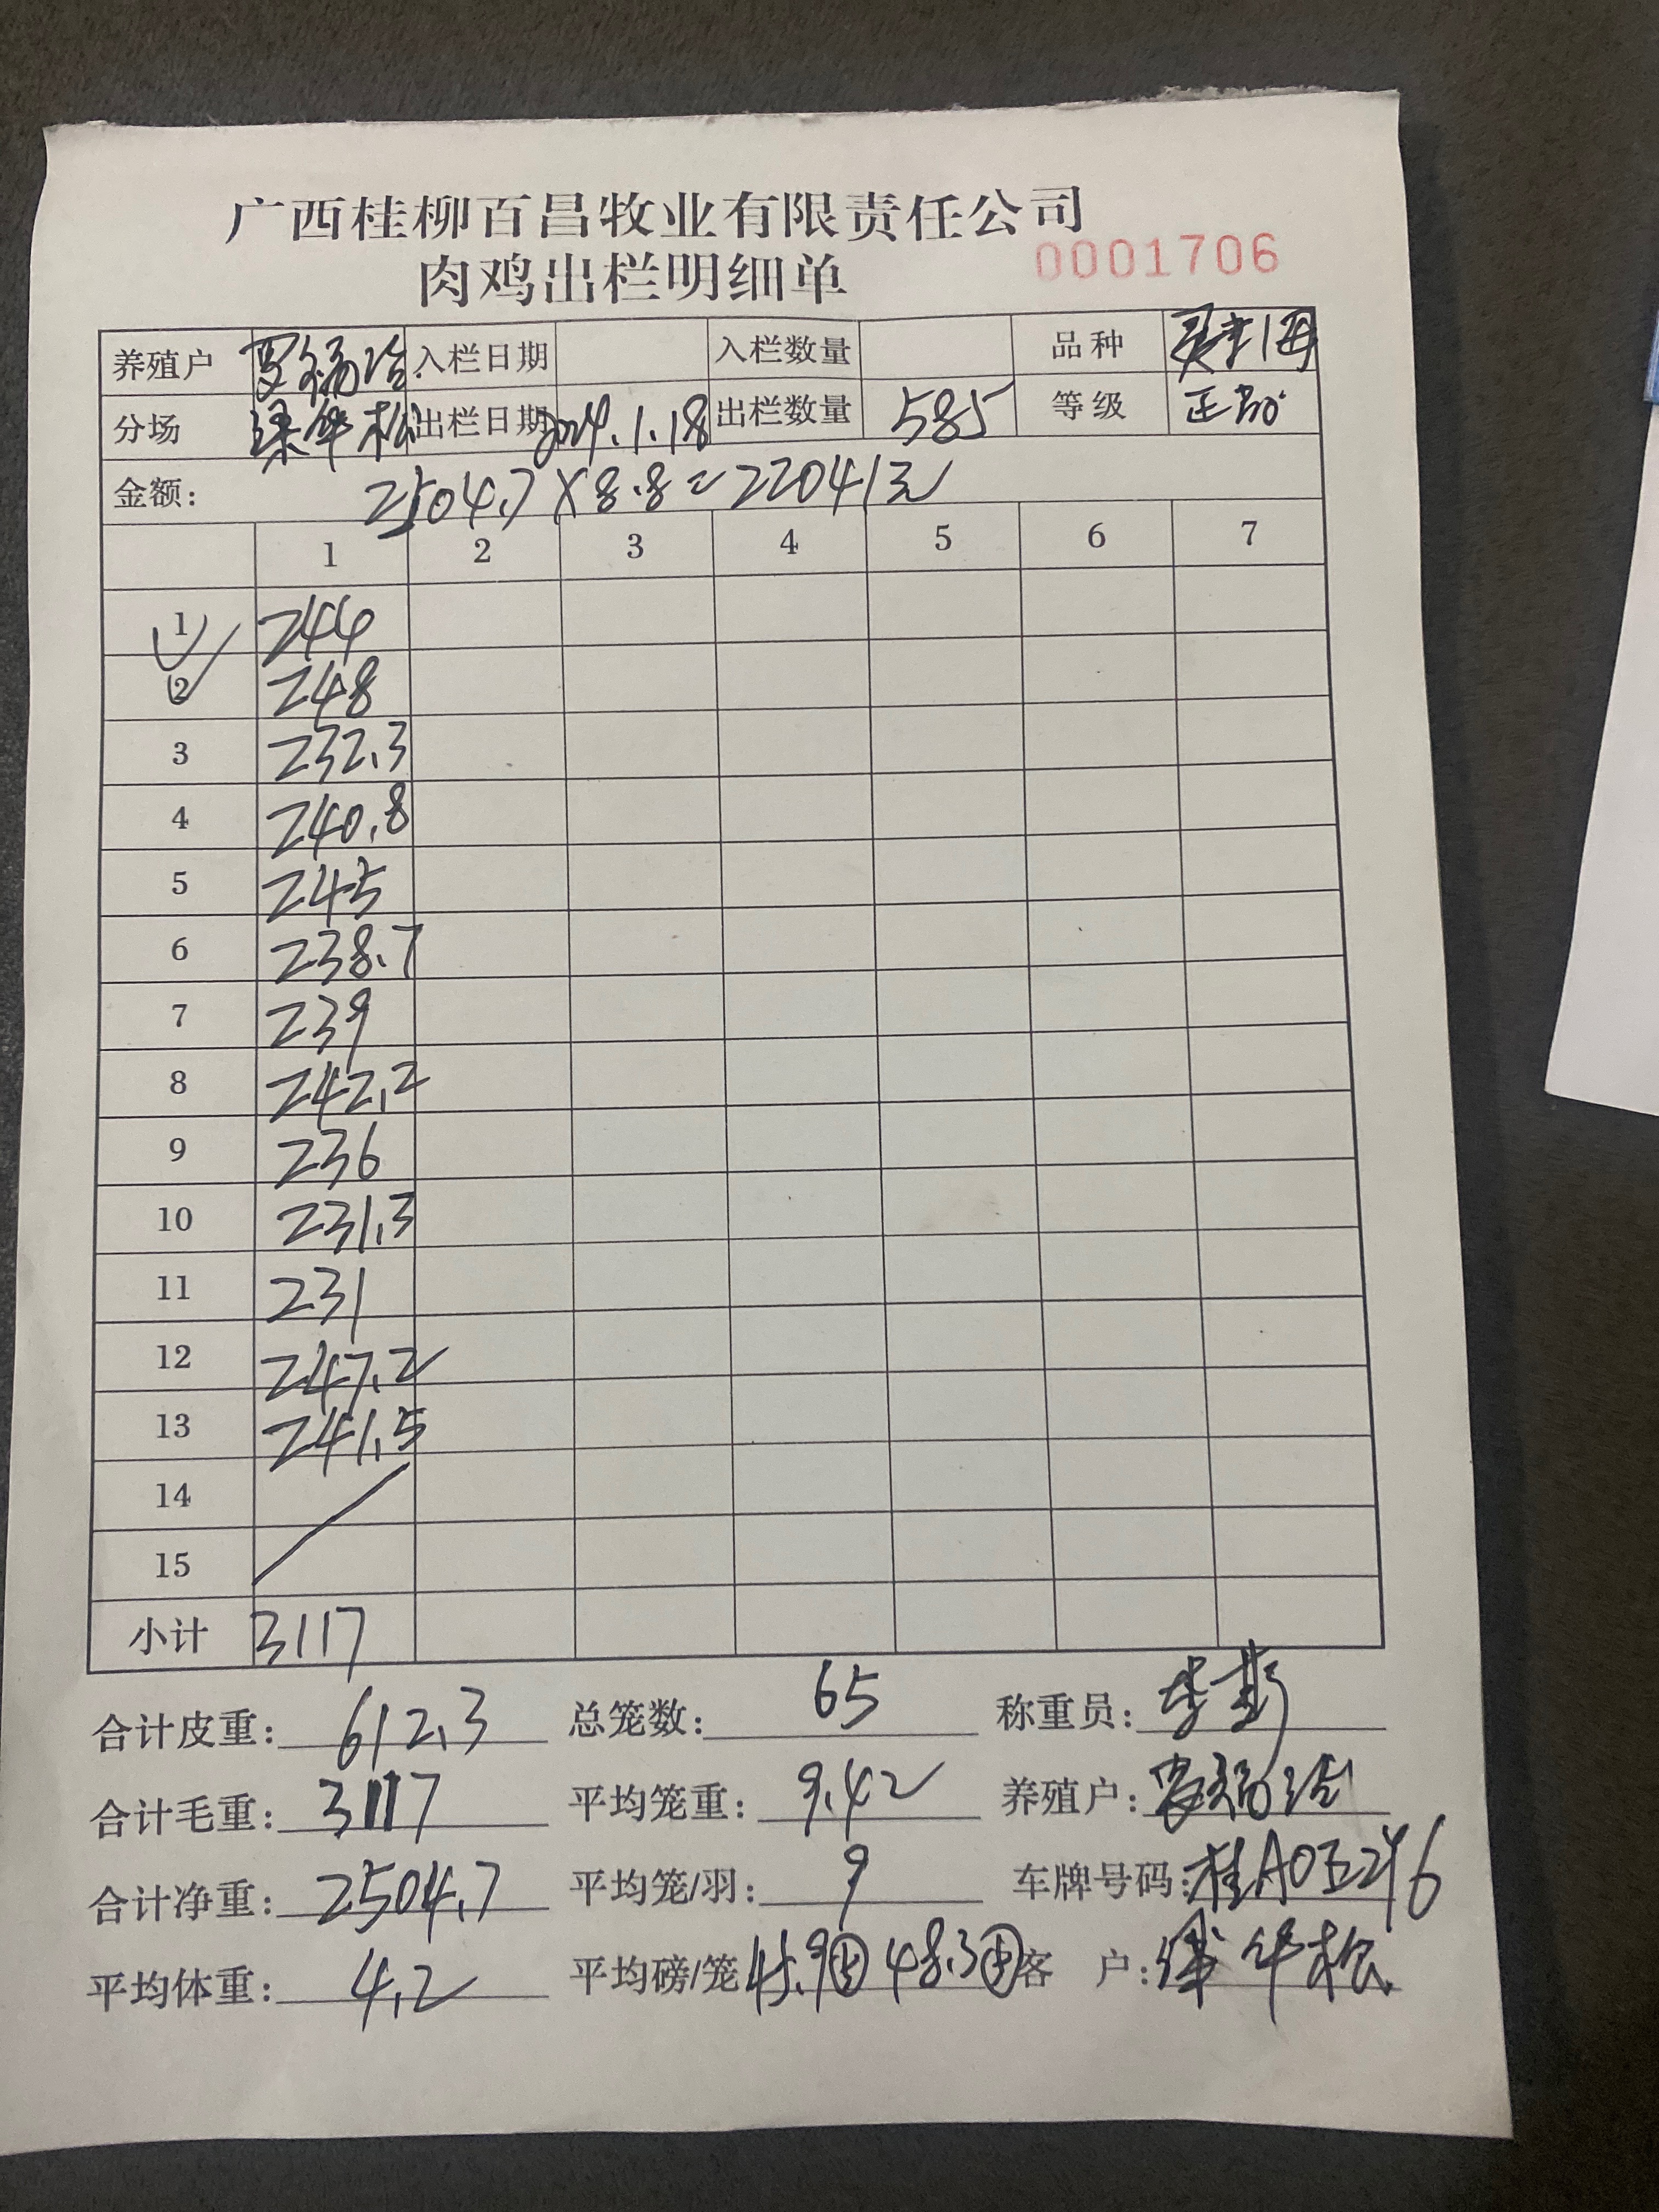 广西桂柳百昌牧业有限责任公司
肉鸡出栏明细单 0001706
养殖户 入栏日期 入栏数量 品种
分场 梁华松 出栏日期 2024.1.18 出栏数量 585 等级 正品
金额: 2504.7×8.8=22041元
1 2 3 4 5 6 7
1 244
2 248
3 232.3
4 240.8
5 245
6 238.7
7 239
8 242.2
9 236
10 231.3
11 231
12 247.2
13 241.5
14
15
小计 3117
合计皮重: 612.3 总笼数: 65 称重员:
合计毛重: 3117 平均笼重: 9.42 养殖户:
合计净重: 2504.7 平均笼/羽: 9 车牌号码:
平均体重: 4.2 平均磅/笼 45.9 48.3 客户: 梁华松